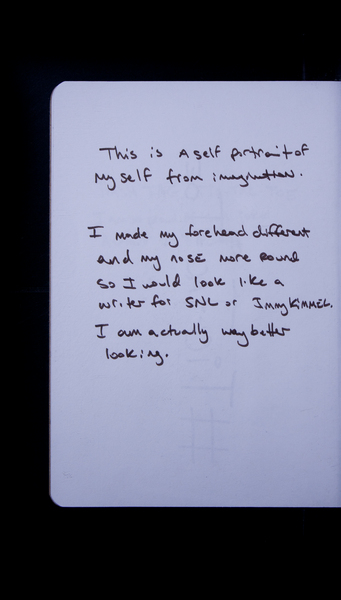 This is A self portrait of
My self from imagination.
I made my forehead different
and my nose more round
so I would look like a
writer for SNL or Jmmy KiMMEL.
I am actually way better
looking.